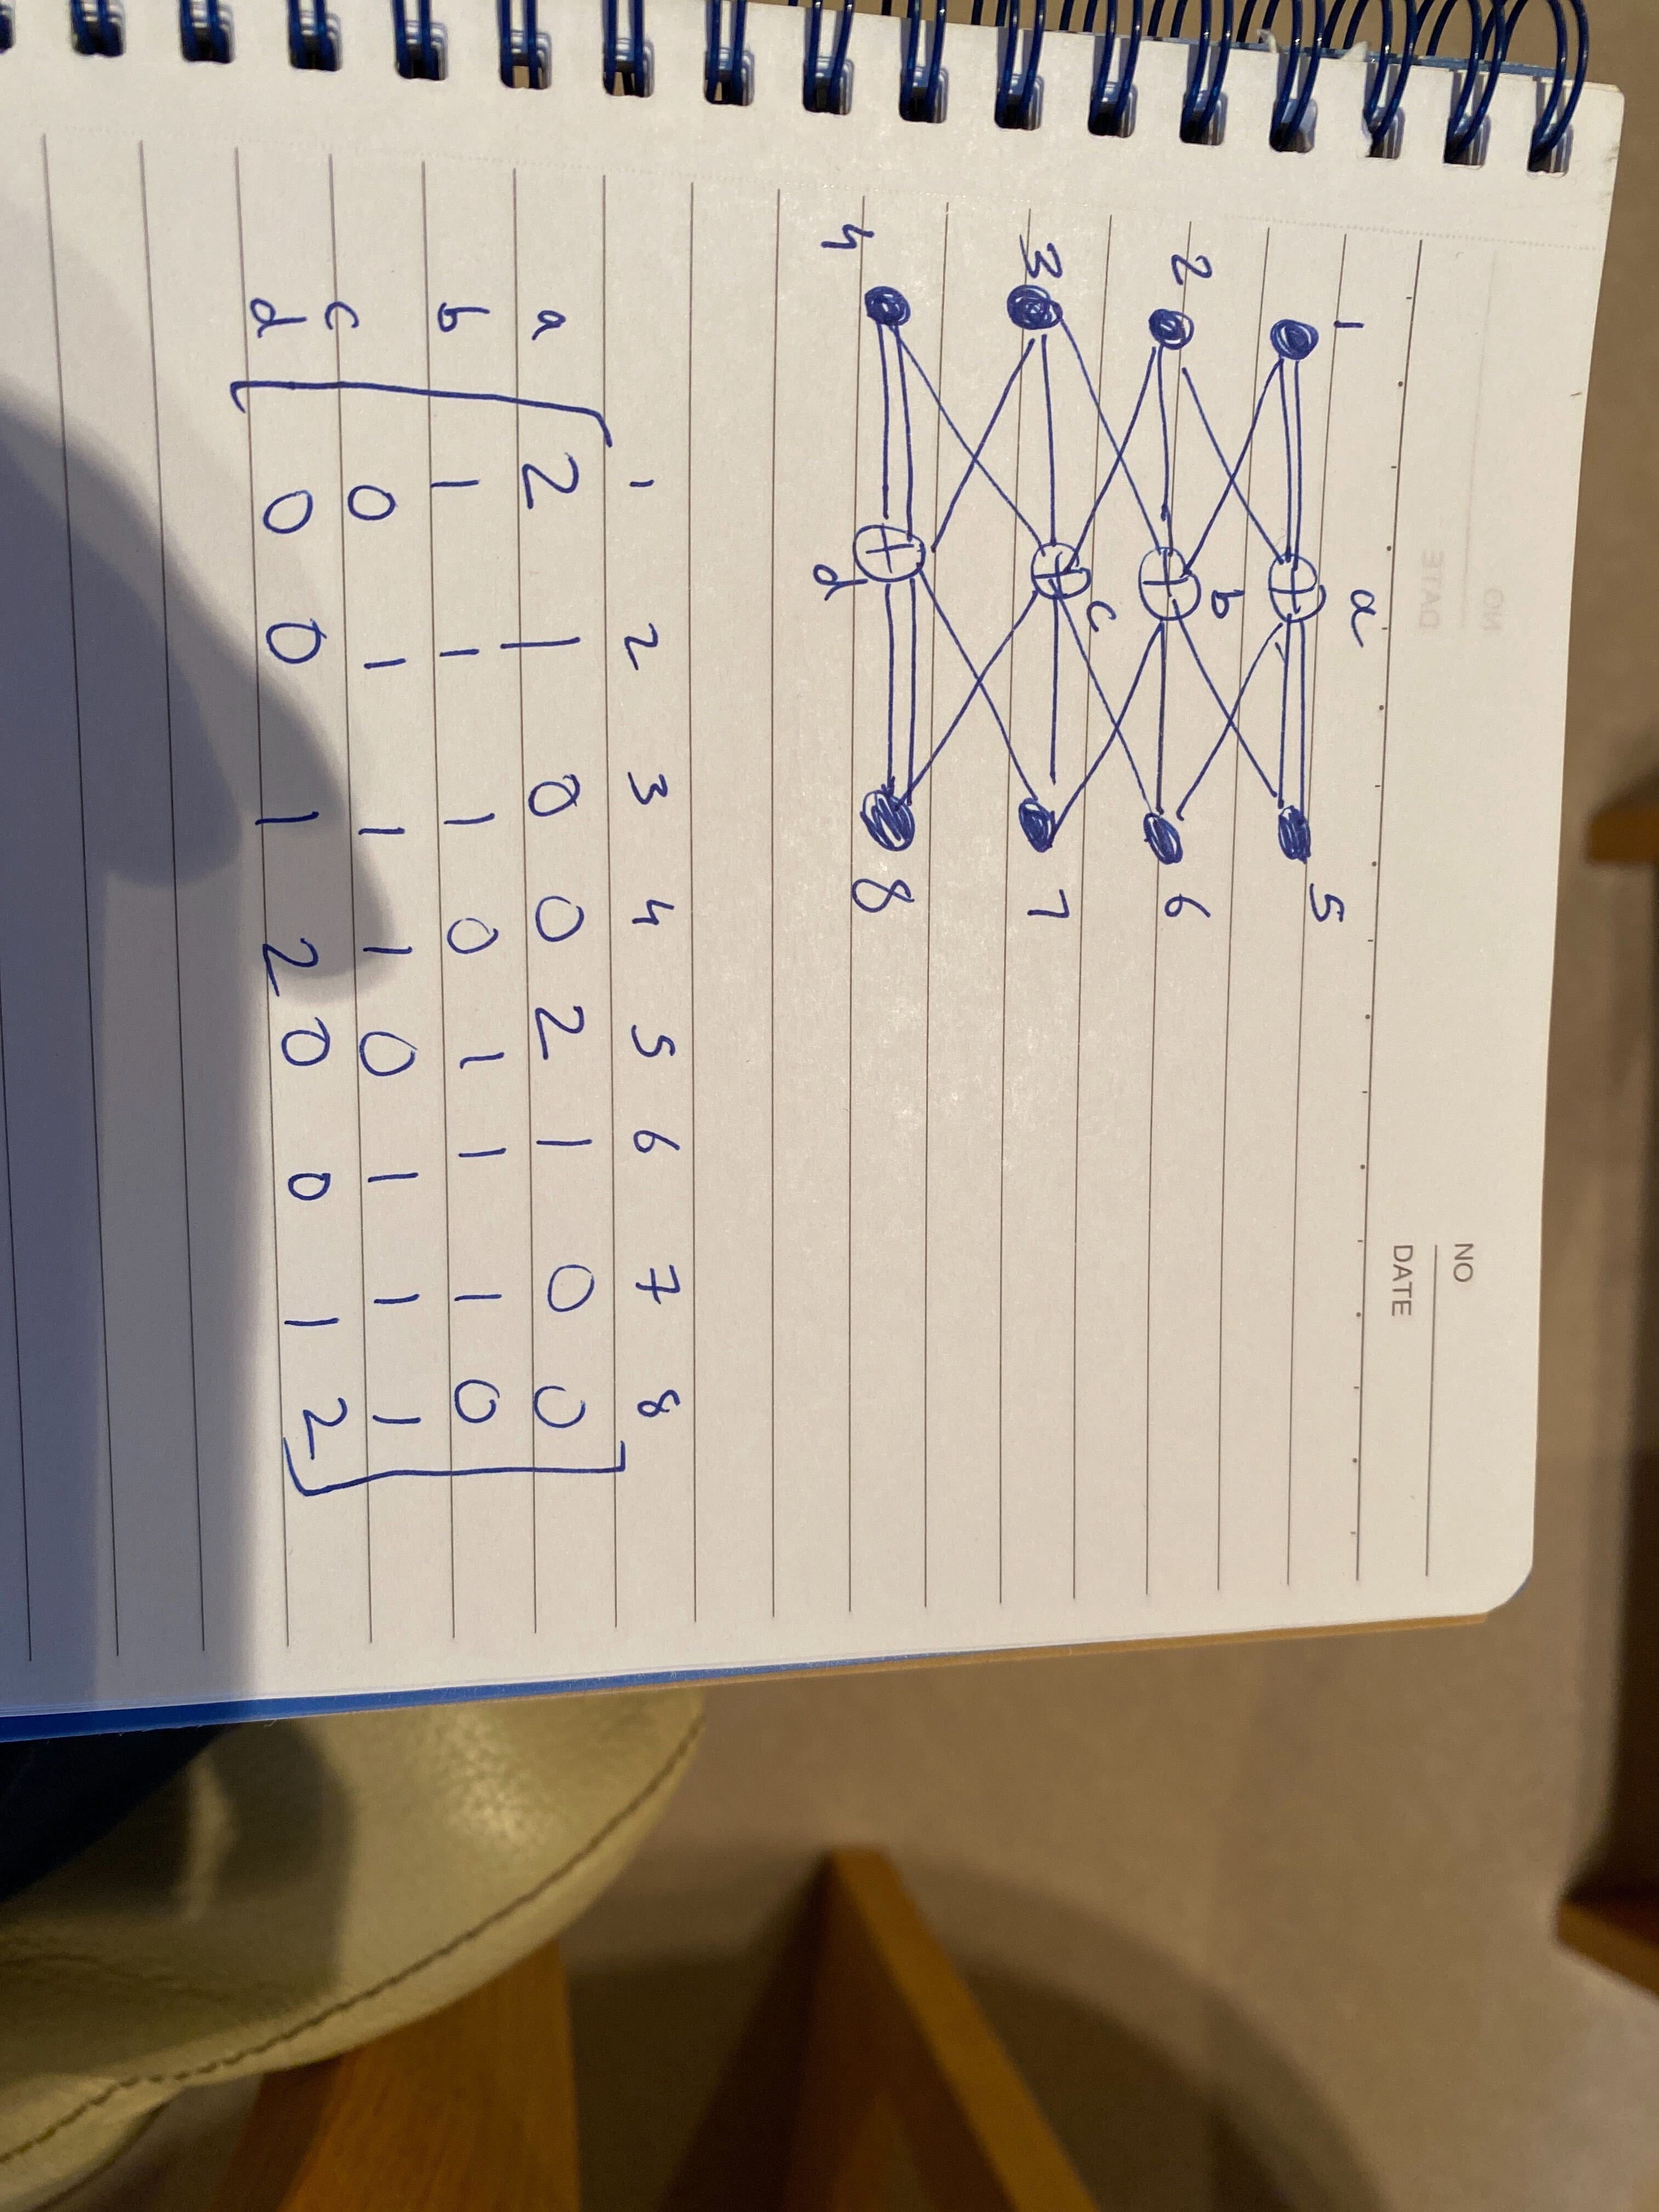 NO
DATE
1 a 5
2 b 6
3 c 7
4 d 8
1 2 3 4 5 6 7 8
a 2 1 0 0 2 1 0 0
b 1 1 1 0 1 1 1 0
c 0 1 1 1 0 1 1 1
d 0 0 1 2 0 0 1 2